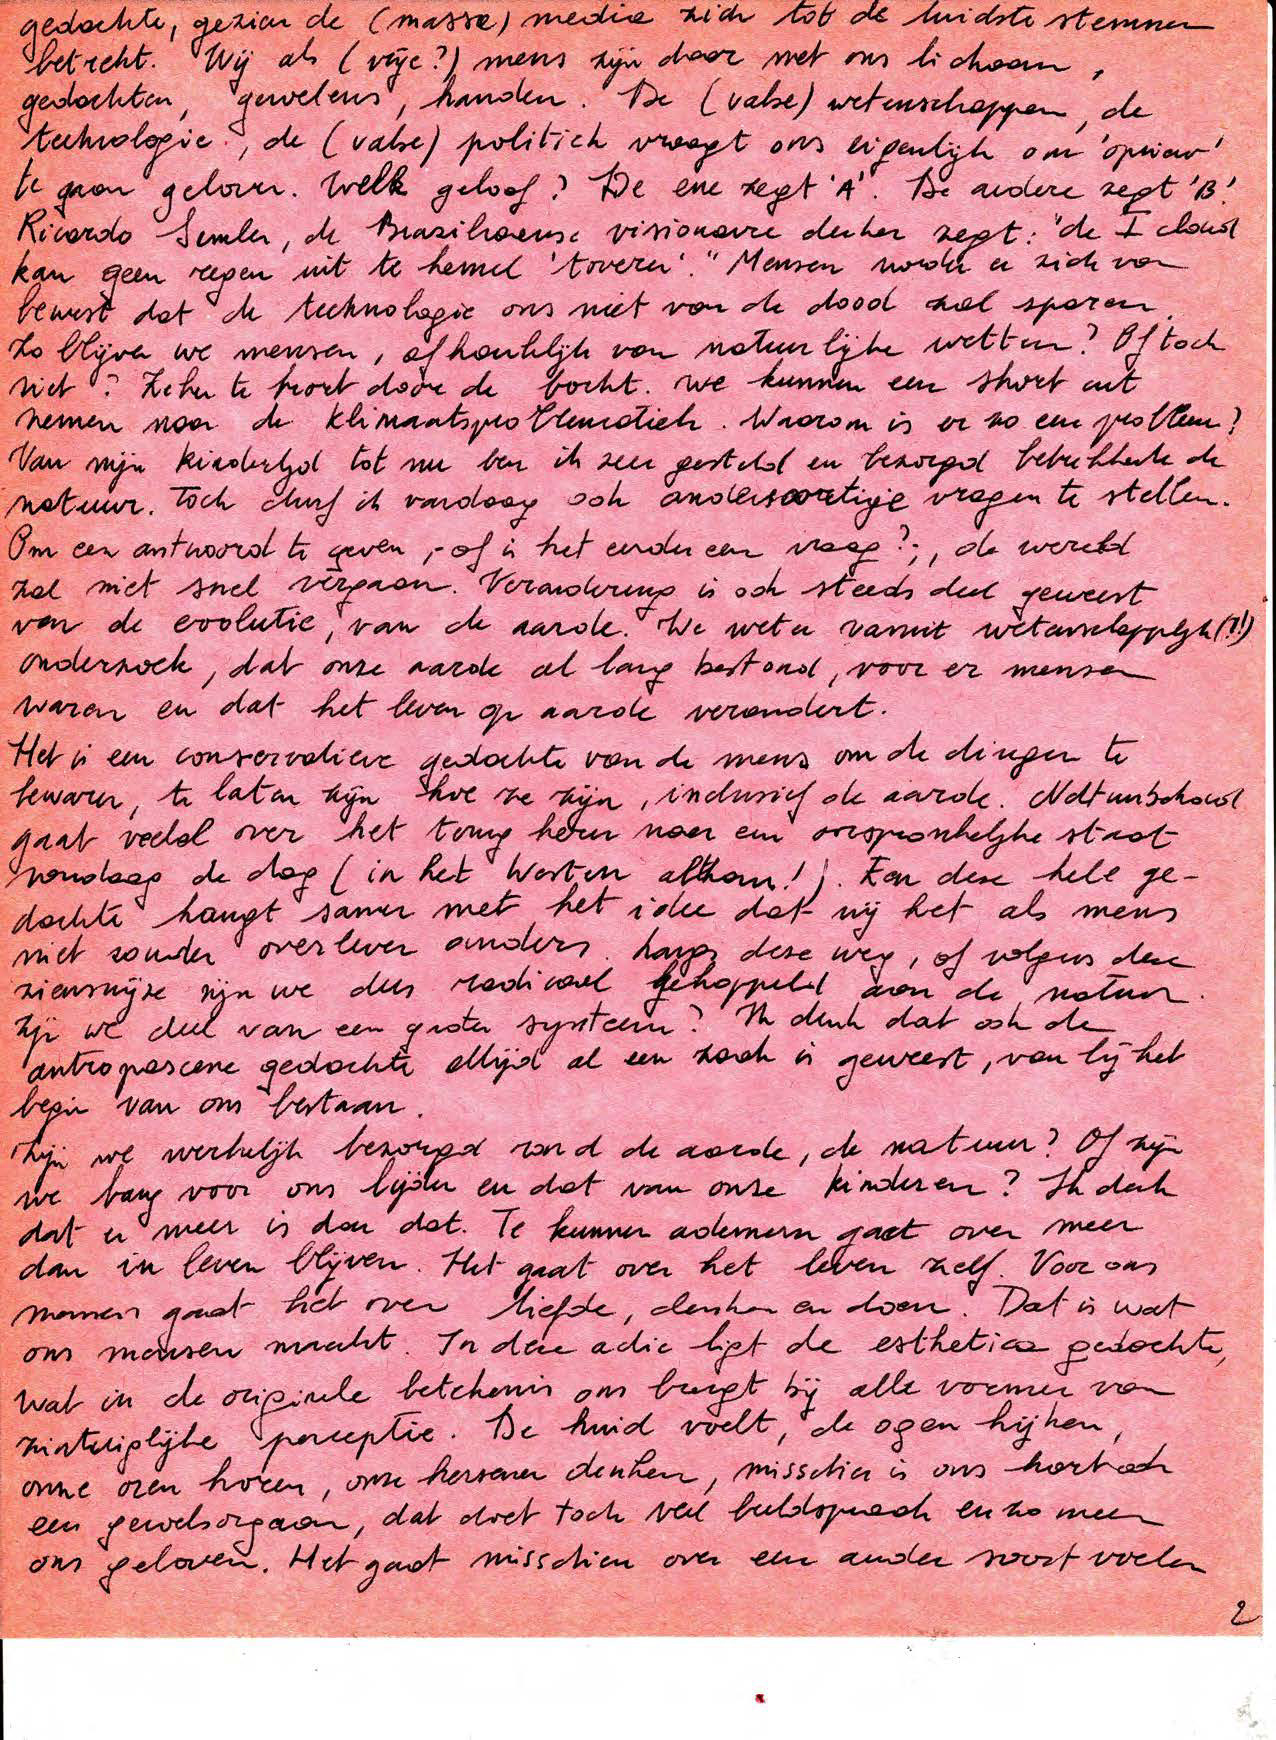 gedachte, gezien de (massa) media zich tot de luidste stemmen
betrekt. Wij als (vrije?) mens zijn daar met ons lichaam,
gedachten, gevoelens, handen. De (valse) wetenschappen, de
technologie, de (valse) politiek vraagt ons eigenlijk om 'opnieuw'
te gaan geloven. Welk geloof? De ene zegt 'A'. De andere zegt 'B'.
Ricardo Semler, de Braziliaanse visionaire denker zegt: "de I cloud
kan geen regen uit te hemel 'toveren'." Mensen worden er zich van
bewust dat de technologie ons niet van de dood zal sparen.
Zo blijven we mensen, afhankelijk van natuurlijke wetten? Of toch
niet? Zeker te kort door de bocht. We kunnen een short cut
nemen naar de klimaatsproblematiek. Waarom is er zo een probleem?
Van mijn kindertijd tot nu ben ik zeer gesteld en bezorgd betreffende de
natuur. Toch durf ik vandaag ook andersoortige vragen te stellen.
Om een antwoord te geven, - of is het eerder een vraag? -, de wereld
zal niet snel vergaan. Verandering is ook steeds deel geweest
van de evolutie, van de aarde. We weten vanuit wetenschappelijk (?!)
onderzoek, dat onze aarde al lang bestond, voor er mensen
waren en dat het leven op aarde verandert.
Het is een conservatieve gedachte van de mens om de dingen te
bewaren, te laten zijn hoe ze zijn, inclusief de aarde. Natuurbehoud
gaat veelal over het terug keren naar een oorspronkelijke staat
vandaag de dag (in het Westen althans!). En deze hele ge-
dachte hangt samen met het idee dat wij het als mens
niet zouden overleven anders. Langs deze weg, of volgens deze
zienswijze zijn we dus radicaal gekoppeld aan de natuur.
Zijn we deel van een groter systeem? Ik denk dat ook de
antroposcene gedachte altijd al een zaak is geweest, van bij het
begin van ons bestaan.
Zijn we werkelijk bezorgd rond de aarde, de natuur? Of zijn
we bang voor ons lijden en dat van onze kinderen? Ik denk
dat er meer is dan dat. Te kunnen ademen gaat over meer
dan in leven blijven. Het gaat over het leven zelf. Voor ons
mensen gaat het over liefde, denken en doen. Dat is wat
ons mensen maakt. In deze actie ligt de esthetica gedachte,
wat in de originele betekenis ons brengt bij alle vormen van
zintuiglijke perceptie. De huid voelt, de ogen kijken,
onze oren horen, onze hersenen denken, misschien is ons hart ook
een gevoelsorgaan, dat doet toch veel beeldspraak en zo meer
ons geloven. Het gaat misschien over een ander soort voelen
2